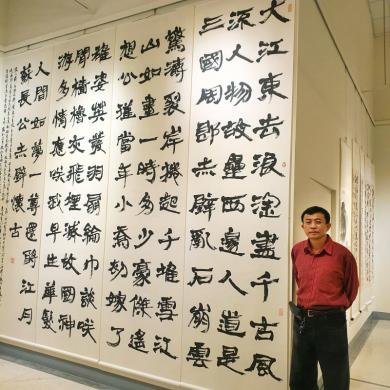 大江東去浪淘盡千古風
流人物故壘西邊人道是
三國周郎赤壁亂石崩雲
驚濤裂岸捲起千堆雪江
山如畫一時多少豪傑遙
想公瑾當年小喬初嫁了
雄姿英發羽扇綸巾談笑
間檣櫓灰飛煙滅故國神
游多情應笑我早生華髮
人間如夢一尊還酹江月
蘇長公赤壁懷古